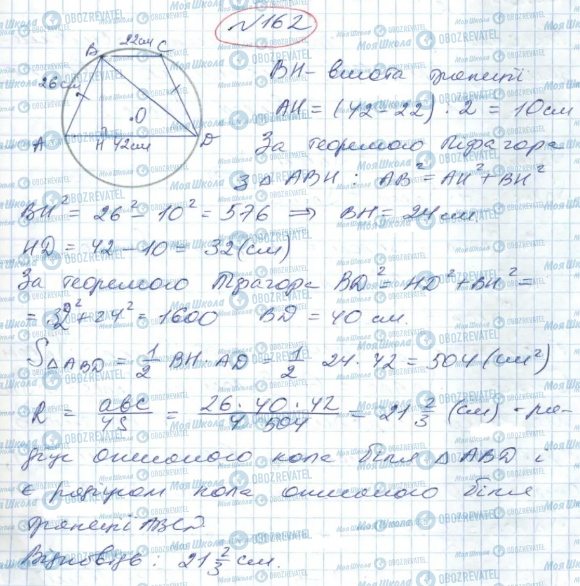 №162
22см
B C
26см
O
A H 42см D
BH - висота трапеції
AH = (42 - 22) : 2 = 10 см
За теоремою Піфагора
з △ ABH : AB² = AH² + BH²
BH² = 26² - 10² = 576 ⇒ BH = 24 см
HD = 42 - 10 = 32 (см)
За теоремою Піфагора BD² = HD² + BH² =
= 32² + 24² = 1600 BD = 40 см.
S△ABD = 1/2 BH · AD = 1/2 · 24 · 42 = 504 (см²)
R = abc/4S = 26 · 40 · 42/4 · 504 = 21 2/3 (см) - ра-
діус описаного кола біля △ ABD і
є радіусом кола описаного біля
трапеції ABCD
Відповідь : 21 2/3 см.
Моя Школа
OBOZREVATEL